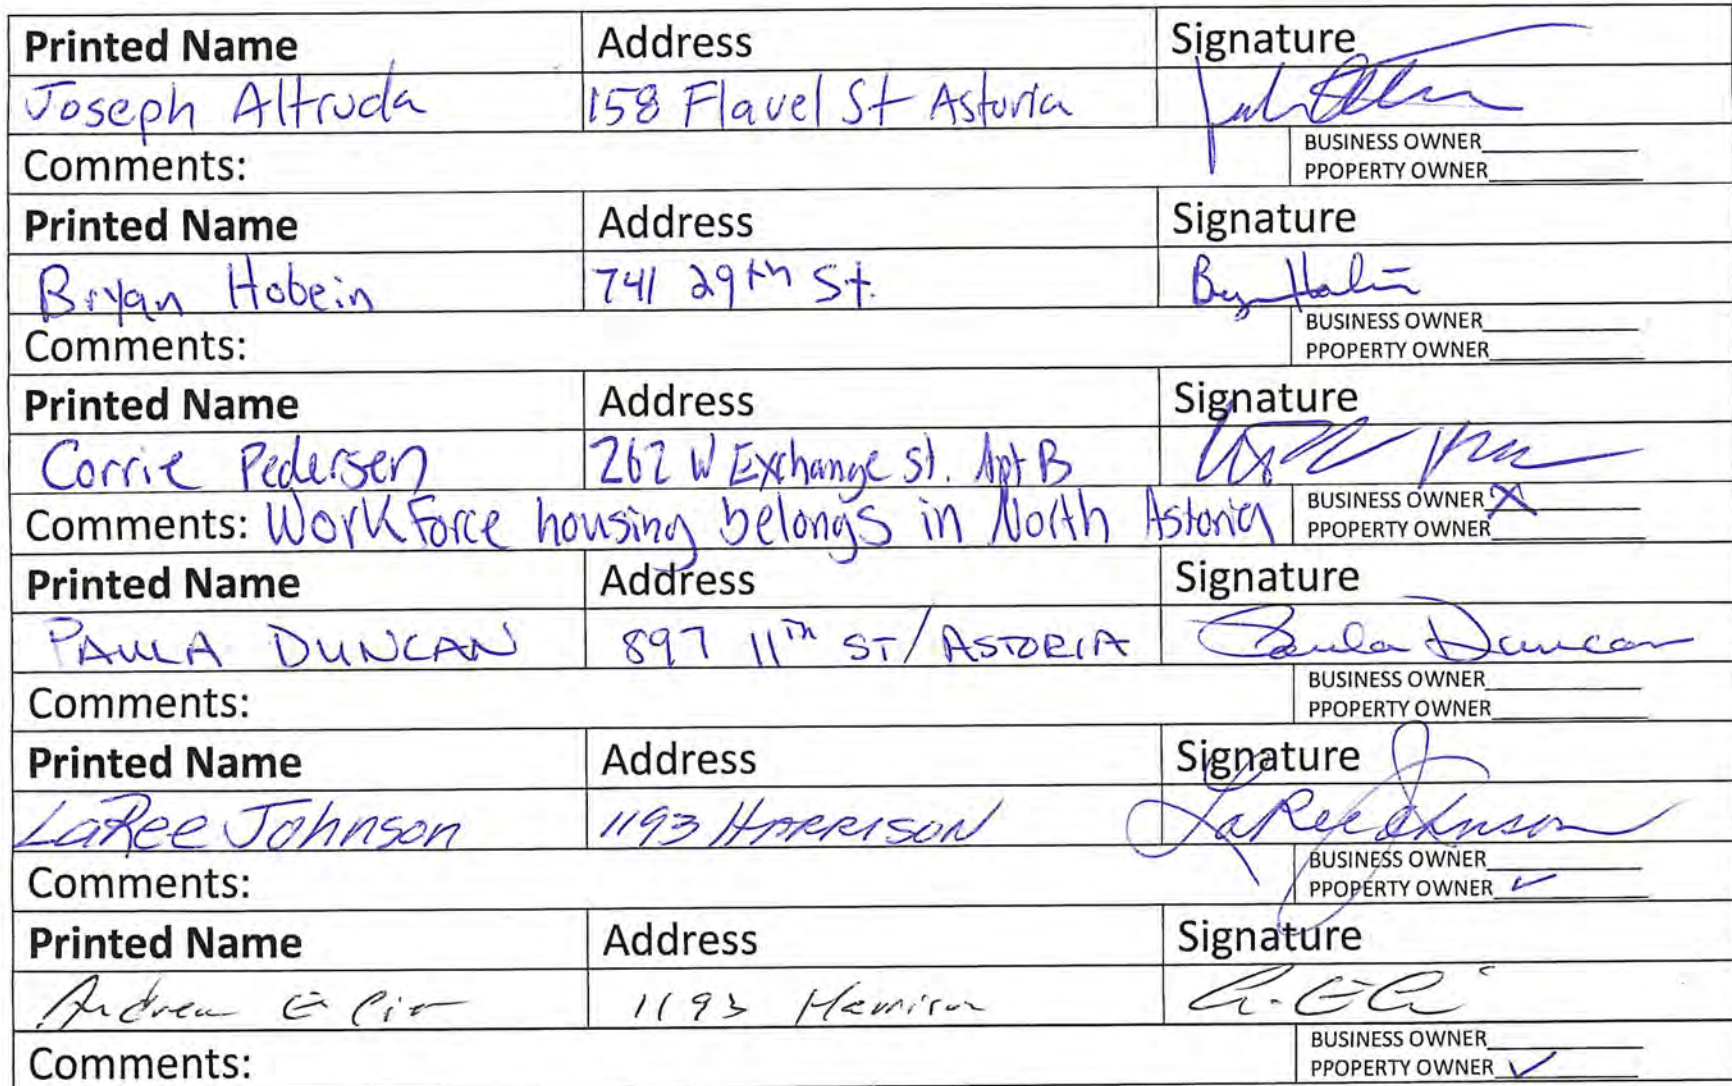 Printed Name Address Signature
Joseph Altruda 158 Flavel St Astoria
BUSINESS OWNER
Comments: PPOPERTY OWNER
Printed Name Address Signature
Bryan Hobein 741 29th St.
BUSINESS OWNER
Comments: PPOPERTY OWNER
Printed Name Address Signature
Corrie Pedersen 262 W Exchange St. Apt B
Comments: Workforce housing belongs in North Astoria BUSINESS OWNER X
PPOPERTY OWNER
Printed Name Address Signature
PAULA DUNCAN 897 11th ST/ASTORIA Paula Duncan
BUSINESS OWNER
Comments: PPOPERTY OWNER
Printed Name Address Signature
LaRee Johnson 1193 HARRISON LaRee Johnson
BUSINESS OWNER
Comments: PPOPERTY OWNER ✓
Printed Name Address Signature
Andrew 1193 Harrison
BUSINESS OWNER
Comments: PPOPERTY OWNER ✓